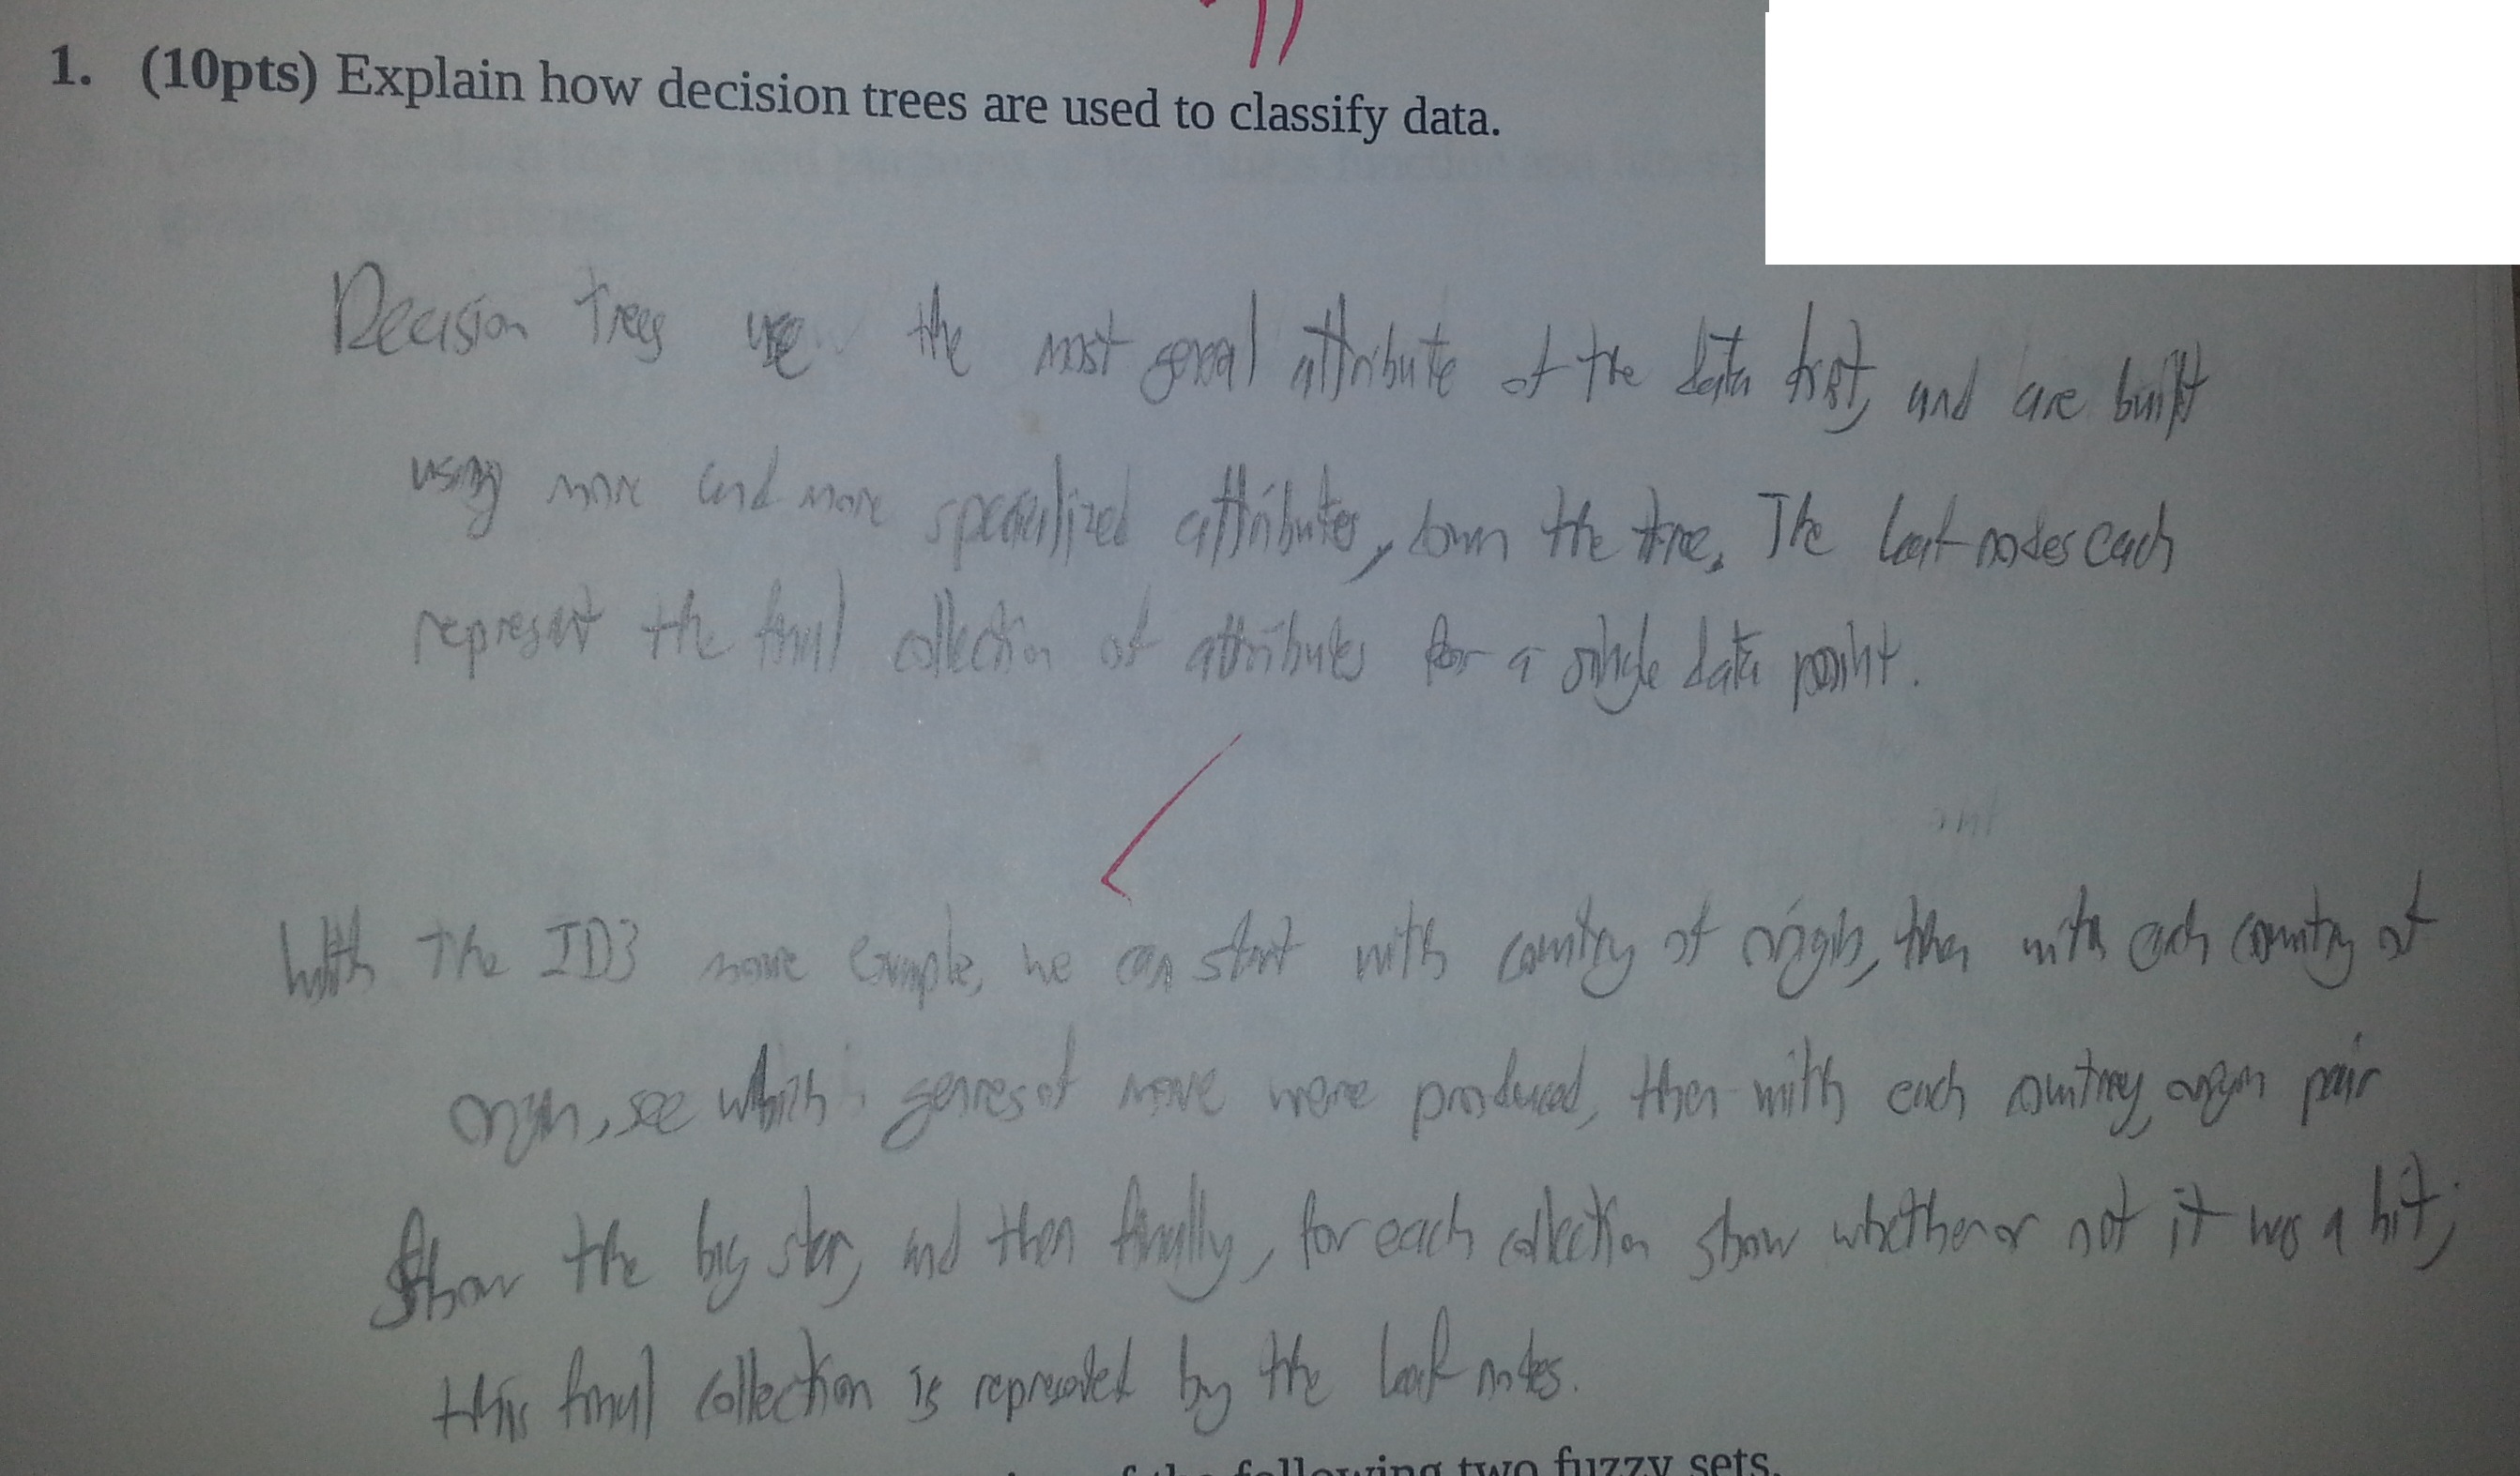 1. (10pts) Explain how decision trees are used to classify data.
Decision Trees use the most general attribute of the data first, and are built
using more and more specialized attributes, down the tree. The leaf nodes each
represent the final collection of attributes for a single data point.
With the ID3 movie example, we can start with country of origin, then with each country of
origin, see which genres of movie were produced, then with each country, origin pair
Show the big star, and then finally, for each collection show whether or not it was a hit;
this final collection is represented by the leaf nodes.
following two fuzzy sets.